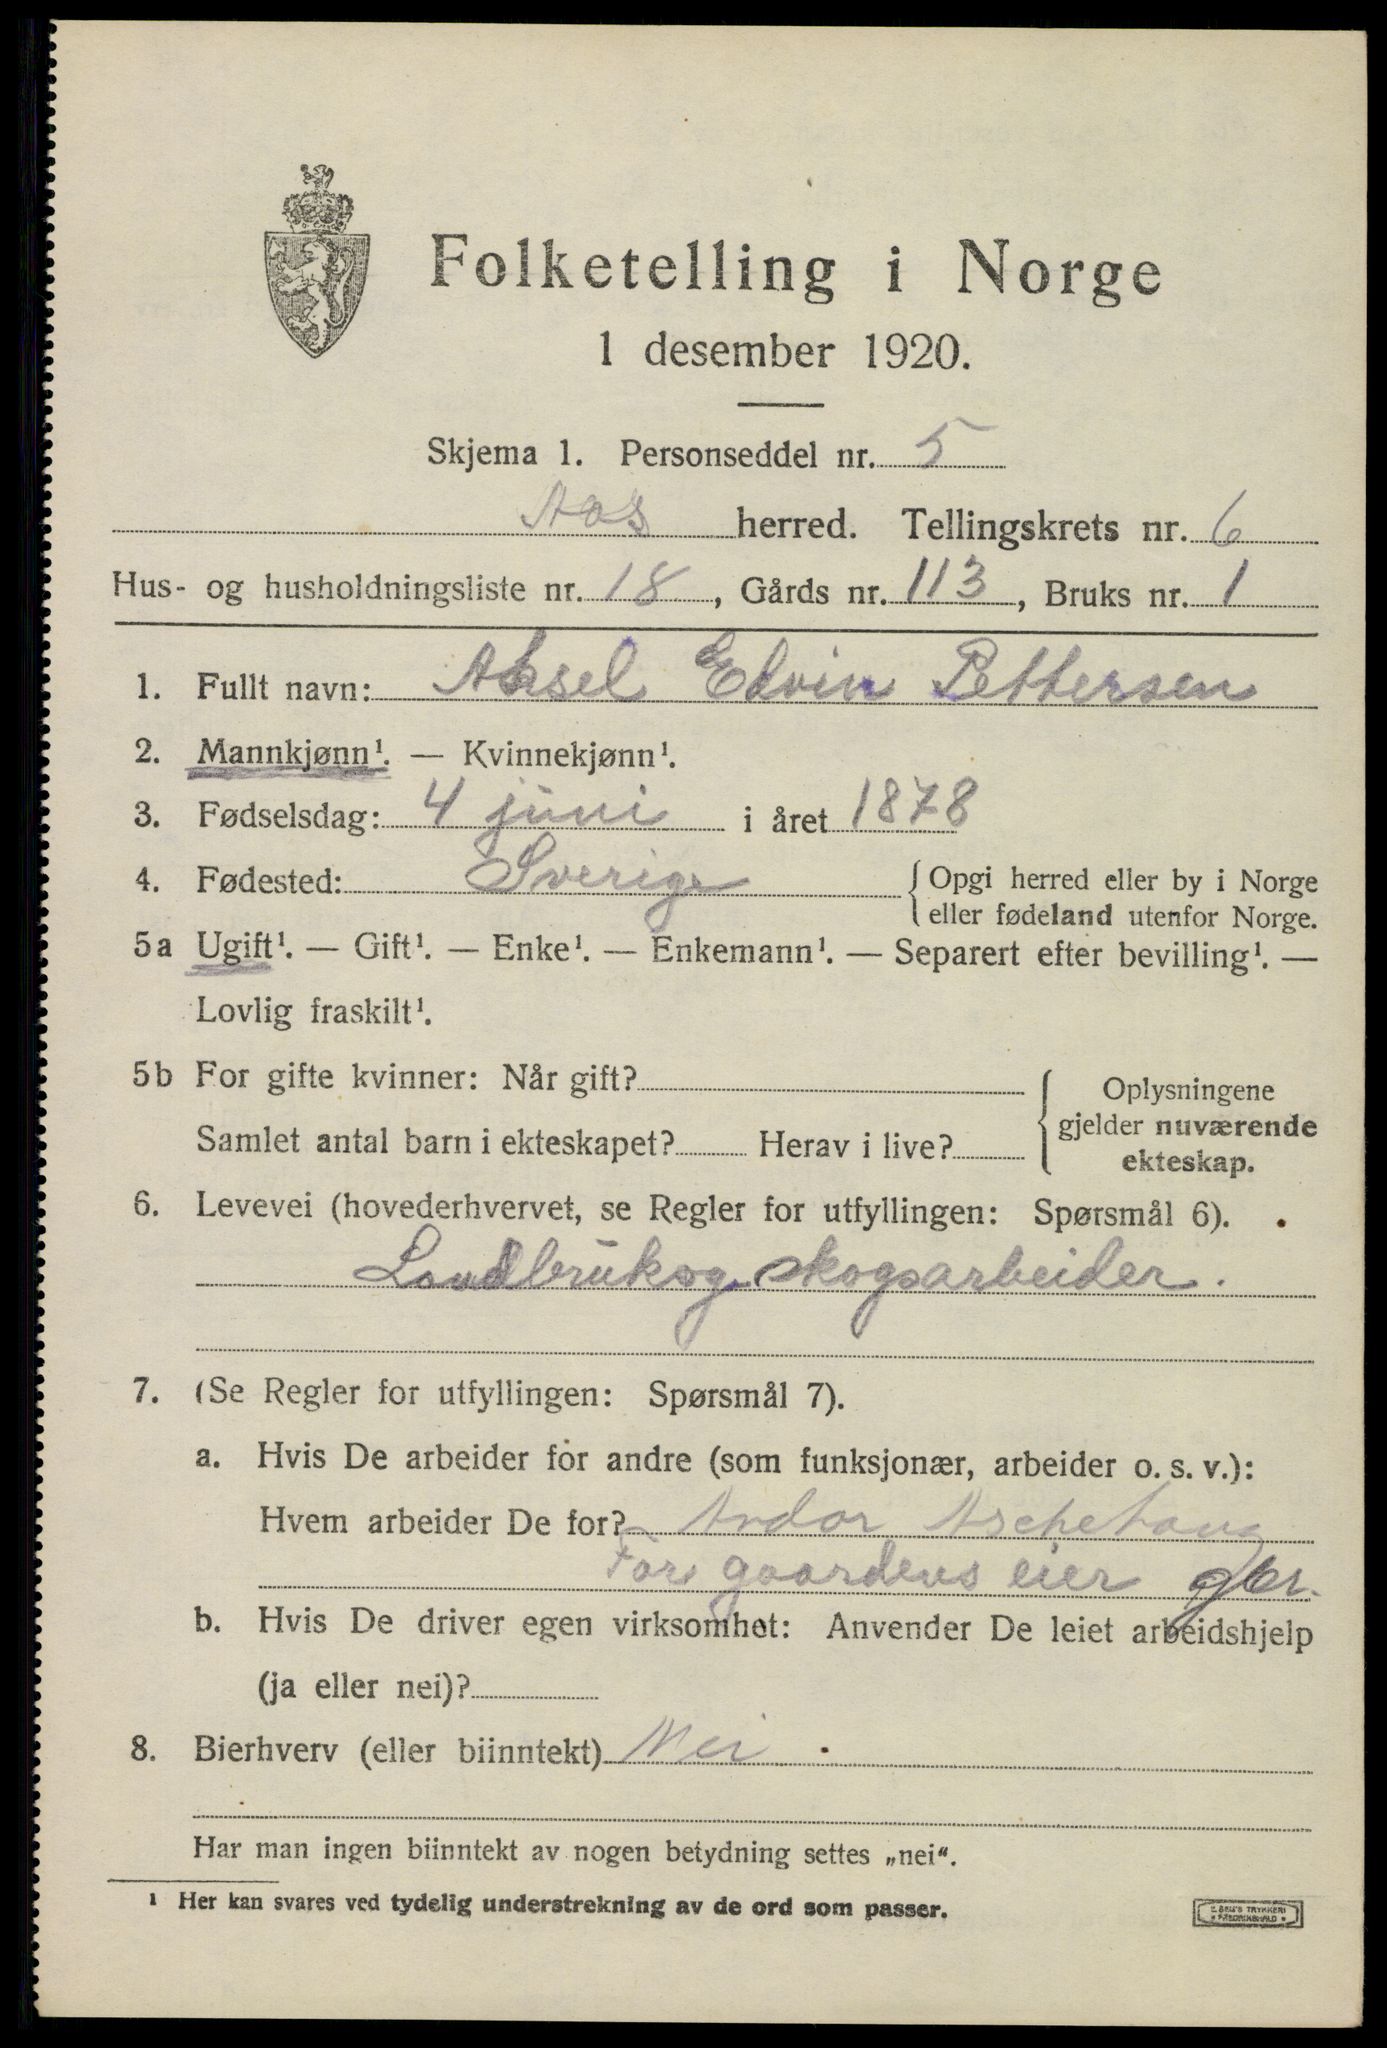 Folketelling i Norge
1 desember 1920.
Skjema 1. Personseddel nr. 5
Aas herred. Tellingskrets nr. 6
Hus- og husholdningsliste nr. 18, Gårds nr. 113, Bruks nr. 1
1. Fullt navn: Aksel Edvin Pettersen
2. Mannkjønn¹. — Kvinnekjønn¹.
3. Fødselsdag: 4 juni i året 1878
4. Fødested: Sverige {Opgi herred eller by i Norge
eller fødeland utenfor Norge.
5a Ugift¹. — Gift¹. — Enke¹. — Enkemann¹. — Separert efter bevilling¹. —
Lovlig fraskilt¹.
5b For gifte kvinner: Når gift?
Samlet antal barn i ekteskapet? Herav i live?
Oplysningene
gjelder nuværende
ekteskap.
6. Levevei (hovederhvervet, se Regler for utfyllingen: Spørsmål 6).
Landbruk og skogsarbeider.
7. (Se Regler for utfyllingen: Spørsmål 7).
a. Hvis De arbeider for andre (som funksjonær, arbeider o. s. v.):
Hvem arbeider De for? Andor Aschehoug
For gaardens eier gbr.
b. Hvis De driver egen virksomhet: Anvender De leiet arbeidshjelp
(ja eller nei)?
8. Bierhverv (eller biinntekt) Nei
Har man ingen biinntekt av nogen betydning settes „nei“.
¹ Her kan svares ved tydelig understrekning av de ord som passer.
E. SEM'S TRYKKERI
FREDRIKSHALD